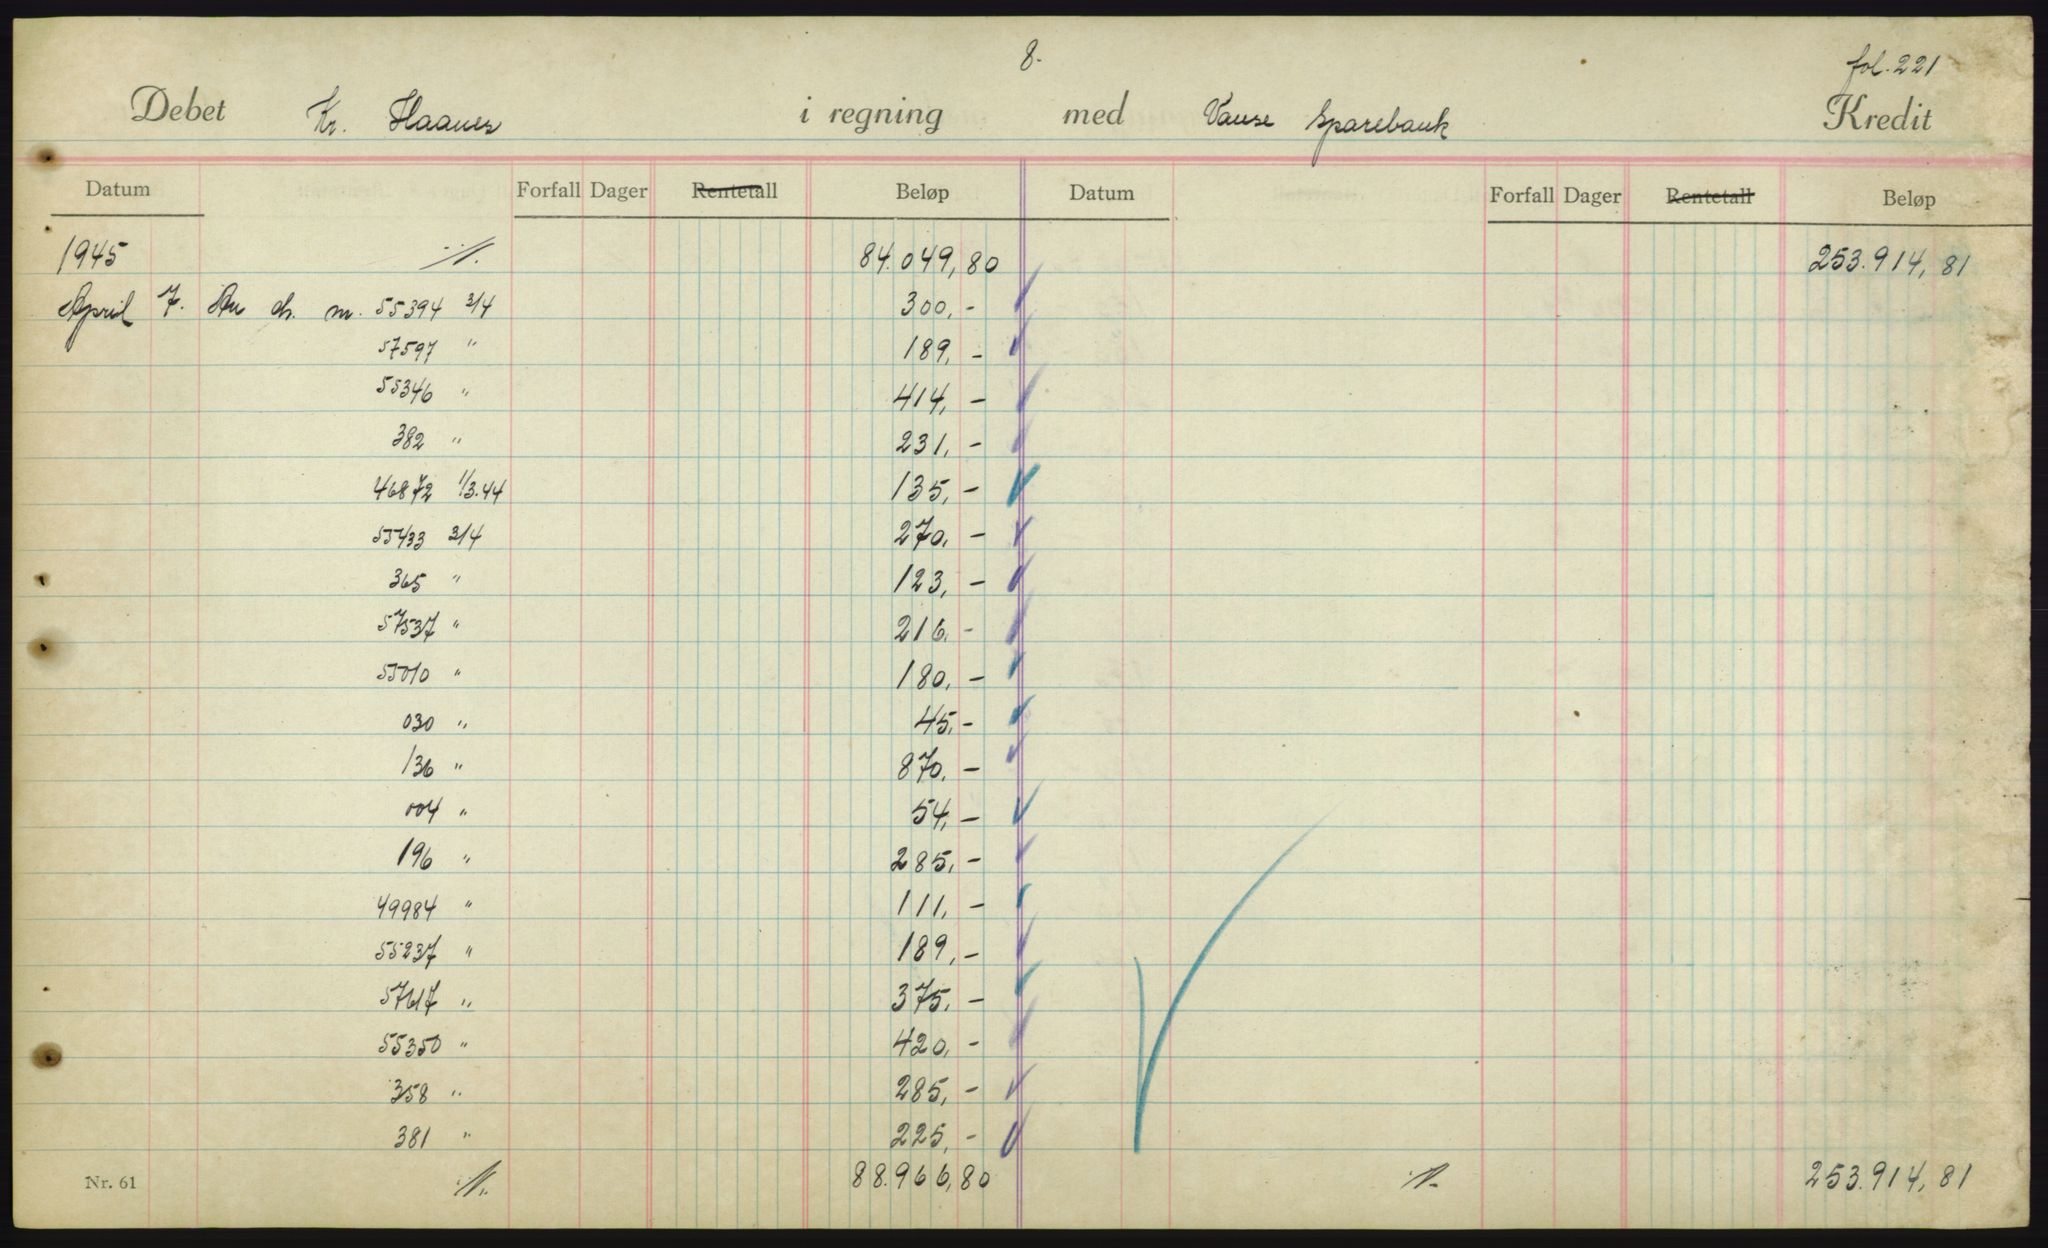 8.
fol. 221
Debet Kr. Haanes i regning med Vanse Sparebank Kredit
Datum Forfall Dager Rentetall Beløp Datum Forfall Dager Rentetall Beløp
1945 84.049,80 253.914,81
April 7. An ch. nr. 55394 3/4 300,-
57597 " 189,-
55346 " 414,-
382 " 231,-
46872 1/3.44 135,-
55433 3/4 270,-
365 " 123,-
57537 " 216,-
55010 " 180,-
030 " 45,-
136 " 870,-
004 " 54,-
196 " 285,-
49984 " 111,-
55237 " 189,-
57617 " 375,-
55350 " 420,-
358 " 285,-
381 " 225,-
Nr. 61 88.966,80 253.914,81